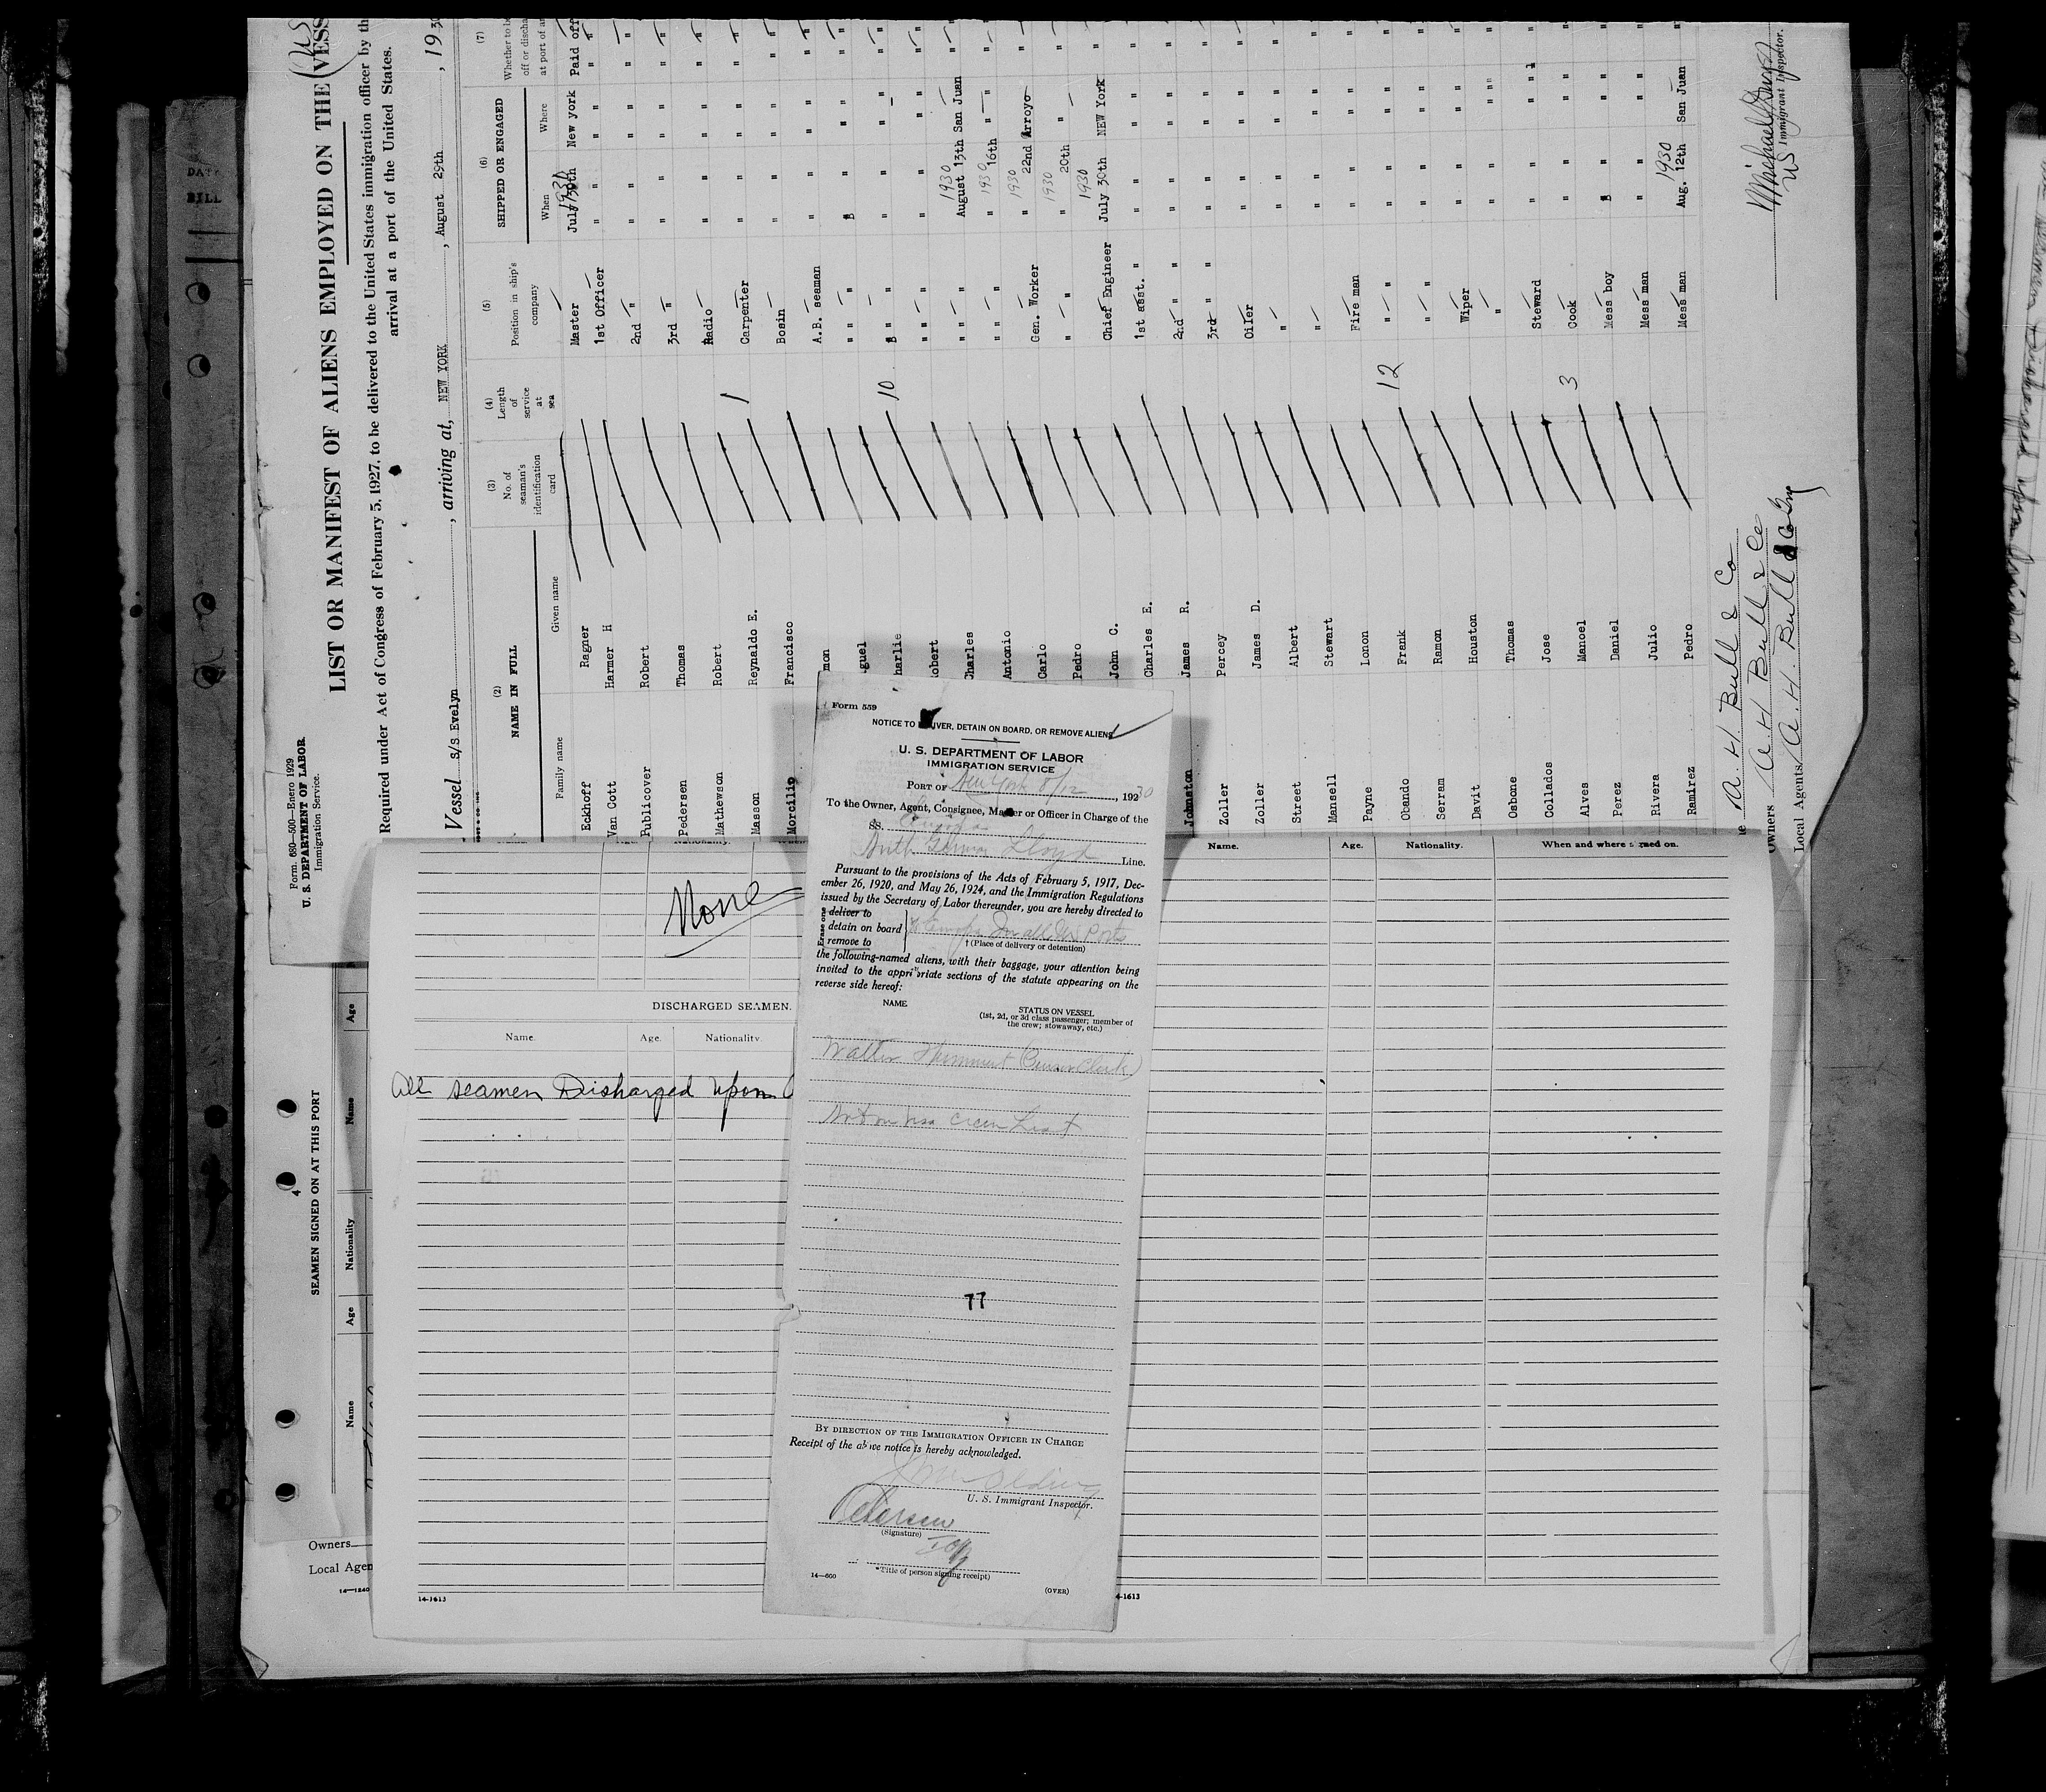 Form 559
NOTICE TO DELIVER, DETAIN ON BOARD, OR REMOVE ALIENS
U. S. DEPARTMENT OF LABOR
IMMIGRATION SERVICE
PORT OF New York 8/12, 1930
To the Owner, Agent, Consignee, Master or Officer in Charge of the
SS.
North German Lloyd Line.
Pursuant to the provisions of the Acts of February 5, 1917, Dec-
ember 26, 1920, and May 26, 1924, and the Immigration Regulations
issued by the Secretary of Labor thereunder, you are hereby directed to
Erase one
deliver to
detain on board
remove to
† (Place of delivery or detention)
the following-named aliens, with their baggage, your attention being
invited to the appropriate sections of the statute appearing on the
reverse side hereof:
NAME
STATUS ON VESSEL
(1st, 2d, or 3d class passenger; member of
the crew; stowaway, etc.)
Walter
Not on visa crew List
77
BY DIRECTION OF THE IMMIGRATION OFFICER IN CHARGE
Receipt of the above notice is hereby acknowledged.
U. S. Immigrant Inspector.
Petersen
(Signature)
*Title of person signing receipt)
14—660
(OVER)
Form 680—500—Enero 1929
U. S. DEPARTMENT OF LABOR
Immigration Service.
LIST OR MANIFEST OF ALIENS EMPLOYED ON THE VESS
Required under Act of Congress of February 5, 1927, to be delivered to the United States immigration officer by th
arrival at a port of the United States.
Vessel S/S Evelyn, arriving at, NEW YORK, August 29th, 1930
(2) NAME IN FULL
Family name Given name
(3) No. of seaman's identification card
(4) Length of service at sea
(5) Position in ship's company
(6) SHIPPED OR ENGAGED
When Where
(7) Whether to be
off or discha
at port of ar
Eckhoff Ragner Master July 30th 1930 New york Paid off
Van Cott Harmer H 1st Officer " " " " " "
Publicover Robert 2nd " " " " " " "
Pedersen Thomas 3rd " " " " " " "
Mathewson Robert Radio " " " " " "
Masson Reynaldo E. 1 Carpenter " " " " " "
Morcilio Francisco Bosin " " " " " "
mon A.B. seaman " " " " " "
guel " " " " " " " "
harlie 10 " " " " " " " "
obert " " " " " " " "
Charles " " 1930 August 13th San Juan " "
Antonio " " 1930 " 16th " " " "
Carlo Gen. Worker 1930 " 22nd Arroyo " "
Pedro " " 1930 " 20th " " "
John C. Chief Engineer 1930 July 30th NEW York " "
Charles E. 1st asst. " " " " " " "
Johnston James R. 2nd " " " " " " "
Zoller Percey 3rd " " " " " " "
Zoller James D. Oiler " " " " " "
Street Albert " " " " " " "
Mansell Stewart " " " " " " "
Payne Lonon Fire man " " " " " "
Obando Frank 12 " " " " " " " "
Serram Ramon " " " " " " " "
Davit Houston Wiper " " " " " "
Osbone Thomas " " " " " " "
Collados Jose Steward " " " " " "
Alves Manoel 3 Cook " " " " " "
Perez Daniel Mess boy " " " " " "
Rivera Julio Mess man " " " " " "
Ramirez Pedro Mess man 1930 Aug. 12th San Juan " "
A. H. Bull & Co
Owners A H Bull & Co
Local Agents A. H. Bull & Co
Immigrant Inspector.
Age. Nationality.
None
DISCHARGED SEAMEN.
Name. Age. Nationality.
All seamen Discharged upon
14-1613
Name. Age. Nationality. When and where signed on.
4-1613
4
SEAMEN SIGNED ON AT THIS PORT
Name Age Nationality Name Age
Owners
Local Agen
14—1240
DATE
BILL